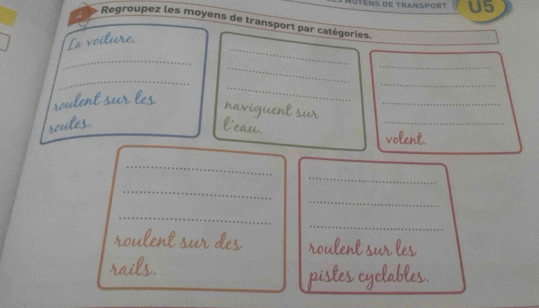 MOYENS DE TRANSPORT
U5
Regroupez les moyens de transport par catégories.
La voiture,
roulent sur les
routes.
naviguent sur
l'eau.
volent.
roulent sur des
rails.
roulent sur les
pistes cyclables.